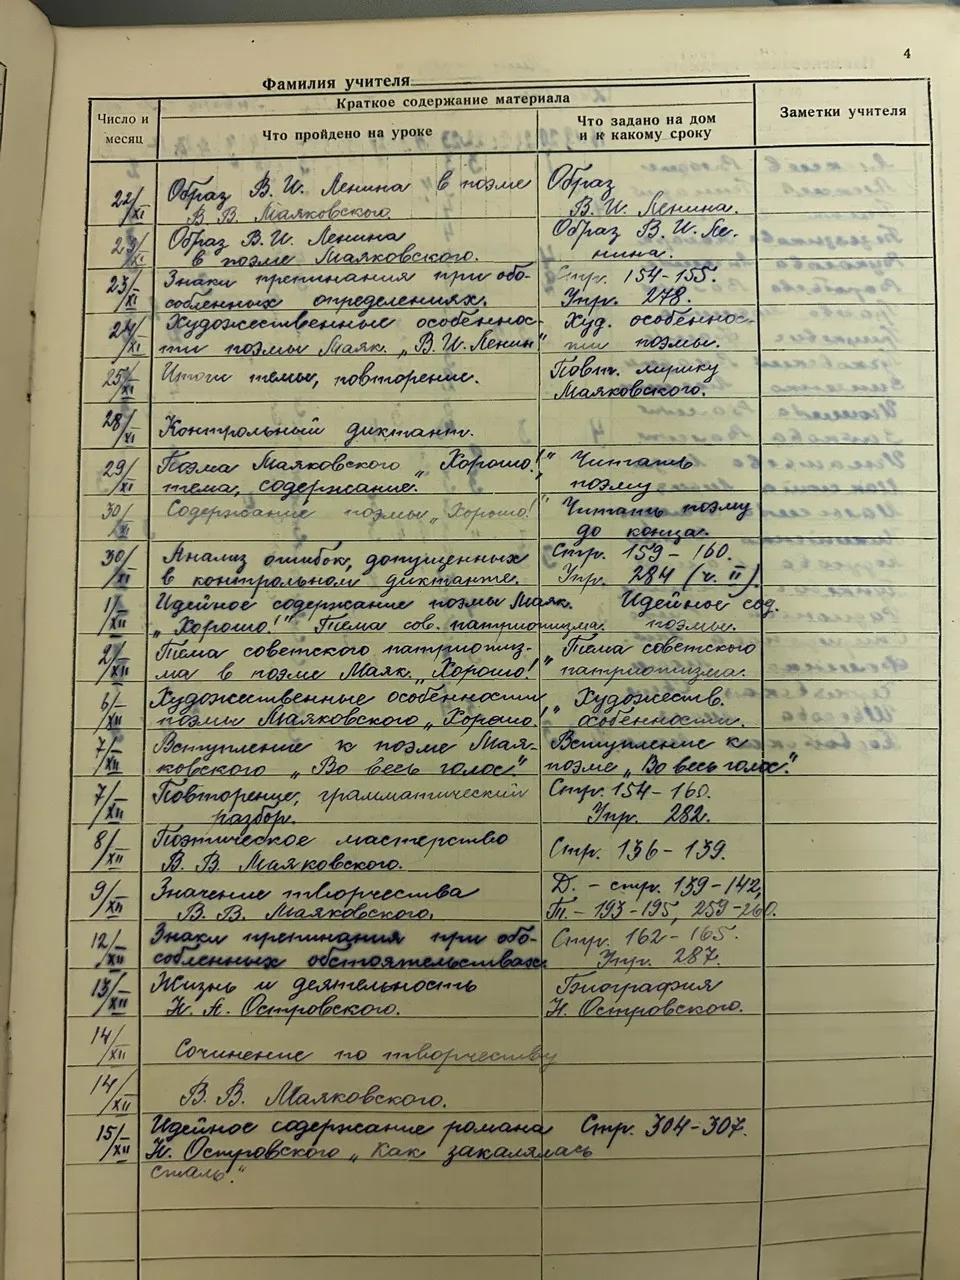 4
Фамилия учителя
Число и месяц
Краткое содержание материала
Что пройдено на уроке
Что задано на дом и к какому сроку
Заметки учителя
22/XI Образ В. И. Ленина в поэме Образ
В. В. Маяковского. В. И. Ленина.
23/XI Образ В. И. Ленина Образ В. И. Ле-
в поэме Маяковского. нина.
23/XI Знаки препинания при обо- Стр. 154-155.
собленных определениях. Упр. 278.
24/XI Художественные особеннос- Худ. особеннос-
ти поэмы Маяк. „В. И. Ленин" ти поэмы.
25/XI Итоги темы, повторение. Повт. лирику
Маяковского.
28/XI Контрольный диктант.
29/XI Поэма Маяковского „Хорошо!" Читать
тема, содержание. поэму
30/XI Содержание поэмы „Хорошо!" Читать поэму
до конца.
30/XI Анализ ошибок, допущенных Стр. 159-160.
в контрольном диктанте. Упр. 284 (ч. II).
1/XII Идейное содержание поэмы Маяк. Идейное сод.
„Хорошо!" Тема сов. патриотизма. поэмы.
2/XII Тема советского патриотиз- Тема советского
ма в поэме Маяк. „Хорошо!" патриотизма.
6/XII Художественные особенности Художеств.
поэмы Маяковского „Хорошо!" особенности.
7/XII Вступление к поэме Мая- Вступление к
ковского „Во весь голос". поэме „Во весь голос".
7/XII Повторение, грамматический Стр. 154-160.
разбор. Упр. 282.
8/XII Поэтическое мастерство Стр. 136-139.
В. В. Маяковского.
9/XII Значение творчества Д. - стр. 139-142,
В. В. Маяковского. Т. - 193-195, 259-260.
12/XII Знаки препинания при обо- Стр. 162-165.
собленных обстоятельствах. Упр. 287.
13/XII Жизнь и деятельность Биография
Н. А. Островского. Н. Островского.
14/XII Сочинение по творчеству
14/XII В. В. Маяковского.
15/XII Идейное содержание романа Стр. 304-307.
Н. Островского „Как закалялась
сталь".